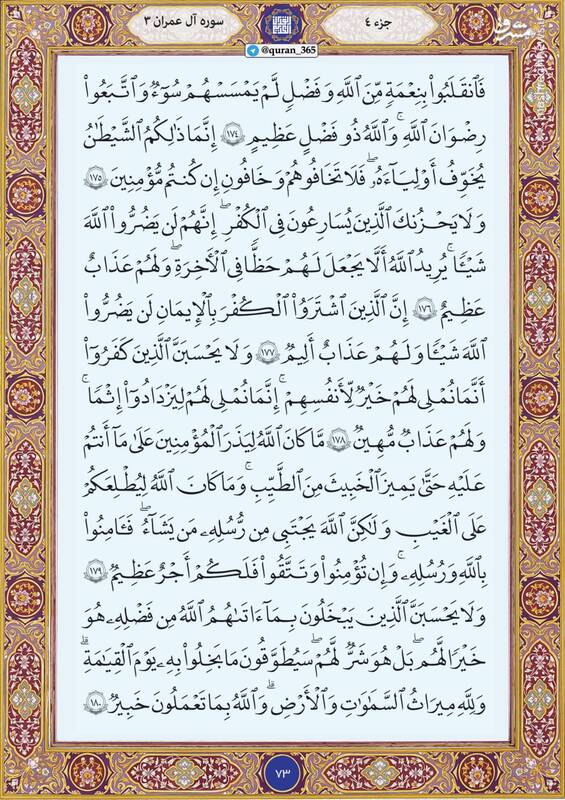 جزء ٤
سوره آل عمران ٣
@quran_365
مشرق
فَٱنقَلَبُوا۟ بِنِعْمَةٍ مِّنَ ٱللَّهِ وَفَضْلٍ لَّمْ يَمْسَسْهُمْ سُوٓءٌ وَٱتَّبَعُوا۟
رِضْوَٰنَ ٱللَّهِ ۗ وَٱللَّهُ ذُو فَضْلٍ عَظِيمٍ ١٧٤ إِنَّمَا ذَٰلِكُمُ ٱلشَّيْطَٰنُ
يُخَوِّفُ أَوْلِيَآءَهُۥ فَلَا تَخَافُوهُمْ وَخَافُونِ إِن كُنتُم مُّؤْمِنِينَ ١٧٥
وَلَا يَحْزُنكَ ٱلَّذِينَ يُسَٰرِعُونَ فِى ٱلْكُفْرِ ۚ إِنَّهُمْ لَن يَضُرُّوا۟ ٱللَّهَ
شَيْـًٔا ۗ يُرِيدُ ٱللَّهُ أَلَّا يَجْعَلَ لَهُمْ حَظًّا فِى ٱلْـَٔاخِرَةِ ۖ وَلَهُمْ عَذَابٌ
عَظِيمٌ ١٧٦ إِنَّ ٱلَّذِينَ ٱشْتَرَوُا۟ ٱلْكُفْرَ بِٱلْإِيمَٰنِ لَن يَضُرُّوا۟
ٱللَّهَ شَيْـًٔا وَلَهُمْ عَذَابٌ أَلِيمٌ ١٧٧ وَلَا يَحْسَبَنَّ ٱلَّذِينَ كَفَرُوٓا۟
أَنَّمَا نُمْلِى لَهُمْ خَيْرٌ لِّأَنفُسِهِمْ ۚ إِنَّمَا نُمْلِى لَهُمْ لِيَزْدَادُوٓا۟ إِثْمًا ۚ
وَلَهُمْ عَذَابٌ مُّهِينٌ ١٧٨ مَّا كَانَ ٱللَّهُ لِيَذَرَ ٱلْمُؤْمِنِينَ عَلَىٰ مَآ أَنتُمْ
عَلَيْهِ حَتَّىٰ يَمِيزَ ٱلْخَبِيثَ مِنَ ٱلطَّيِّبِ ۗ وَمَا كَانَ ٱللَّهُ لِيُطْلِعَكُمْ
عَلَى ٱلْغَيْبِ وَلَٰكِنَّ ٱللَّهَ يَجْتَبِى مِن رُّسُلِهِۦ مَن يَشَآءُ ۖ فَـَٔامِنُوا۟
بِٱللَّهِ وَرُسُلِهِۦ ۚ وَإِن تُؤْمِنُوا۟ وَتَتَّقُوا۟ فَلَكُمْ أَجْرٌ عَظِيمٌ ١٧٩
وَلَا يَحْسَبَنَّ ٱلَّذِينَ يَبْخَلُونَ بِمَآ ءَاتَىٰهُمُ ٱللَّهُ مِن فَضْلِهِۦ هُوَ
خَيْرًا لَّهُم ۖ بَلْ هُوَ شَرٌّ لَّهُمْ ۖ سَيُطَوَّقُونَ مَا بَخِلُوا۟ بِهِۦ يَوْمَ ٱلْقِيَٰمَةِ ۗ
وَلِلَّهِ مِيرَٰثُ ٱلسَّمَٰوَٰتِ وَٱلْأَرْضِ ۗ وَٱللَّهُ بِمَا تَعْمَلُونَ خَبِيرٌ ١٨٠
٧٣